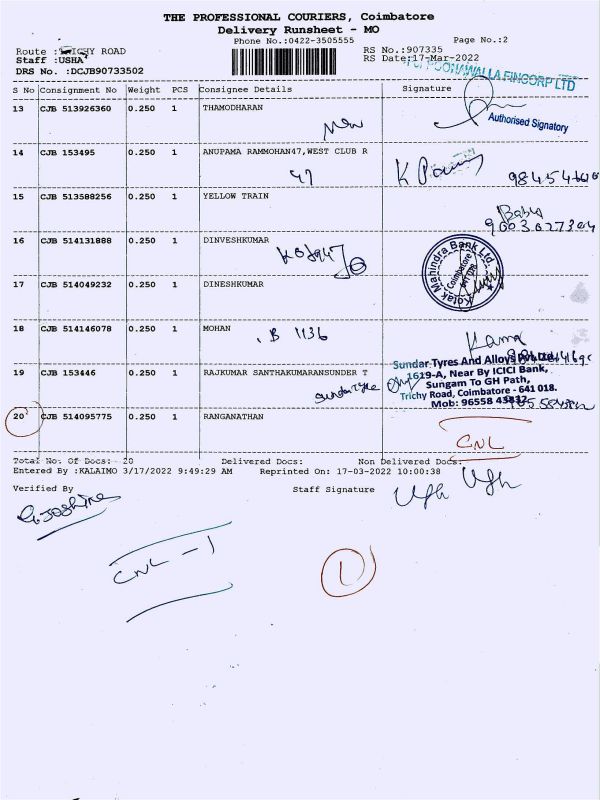 THE PROFESSIONAL COURIERS, Coimbatore
Delivery Runsheet - MO
Phone No.:0422-3505555 Page No.:2
Route : TRICHY ROAD RS No.:907335
Staff :USHA RS Date:17-Mar-2022
DRS No. :DCJB90733502
POONAWALLA FINCORP LTD
S No Consignment No Weight PCS Consignee Details Signature
13 CJB 513926360 0.250 1 THAMODHARAN
Authorised Signatory
14 CJB 153495 0.250 1 ANUPAMA RAMMOHAN47,WEST CLUB R
47
15 CJB 513588256 0.250 1 YELLOW TRAIN
Babu
16 CJB 514131888 0.250 1 DINVESHKUMAR
Kotak Mahindra Bank Ltd.
Coimbatore
17 CJB 514049232 0.250 1 DINESHKUMAR
18 CJB 514146078 0.250 1 MOHAN
B 1136
19 CJB 153446 0.250 1 RAJKUMAR SANTHAKUMARANSUNDER T
Sundar Tyre
Sundar Tyres And Alloys Pvt Ltd.
1619-A, Near By ICICI Bank,
Sungam To GH Path,
Trichy Road, Coimbatore - 641 018.
Mob: 96558 43812
20 CJB 514095775 0.250 1 RANGANATHAN
CNL
Total No. Of Docs: 20 Delivered Docs: Non Delivered Docs:
Entered By :KALAIMO 3/17/2022 9:49:29 AM Reprinted On: 17-03-2022 10:00:38
Verified By Staff Signature
CNL - 1
1